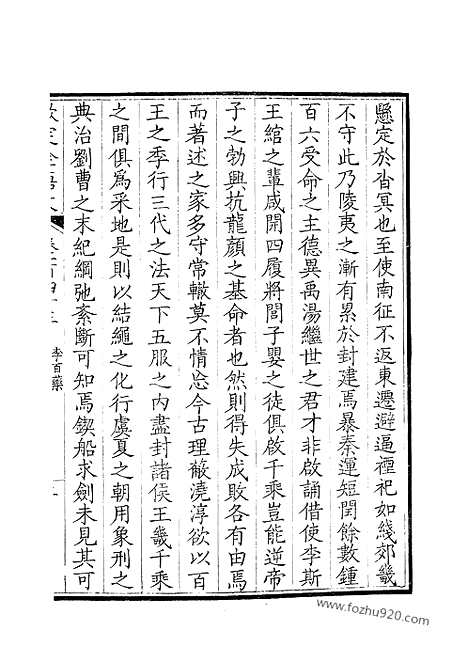 懸定於沓冥也至使南征不返東遷避逼禋祀如綫郊畿
不守此乃陵夷之漸有累於封建焉暴秦運短閏餘數鍾
百六受命之主德異禹湯繼世之君才非啟誦借使李斯
王綰之輩咸開四履將閭子嬰之徒俱啟千乘豈能逆帝
子之勃興抗龍顏之基命者也然則得失成敗各有由焉
而著述之家多守常轍莫不情忘今古理蔽澆淳欲以百
王之季行三代之法天下五服之內盡封諸侯王畿千乘
之間俱為采地是則以結繩之化行虞夏之朝用象刑之
典治劉曹之末紀綱弛紊斷可知焉鍥船求劍未見其可
李百藥
www.fozhu920.com